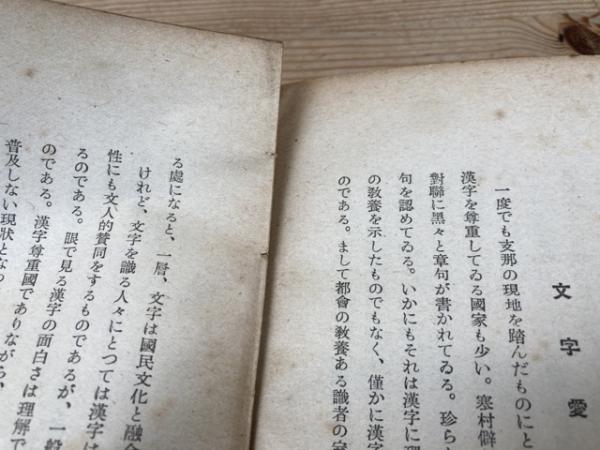 文字愛
一度でも支那の現地を踏んだものにと
漢字を尊重してゐる國家も少い。寒村僻
對聯に黑々と章句が書かれてゐる。珍ら
句を認めてゐる。いかにもそれは漢字に理
の敎養を示したものでもなく、僅かに漢字
のである。まして都會の敎養ある識者の家
る處になると、一層、文字は國民文化と融合
けれど、文字を識る人々にとつては漢字は
性にも文人的贊同をするものであるが、一般
るのである。眼で見る漢字の面白さは理解で
のである。漢字尊重國でありながら、
普及しない現狀となつ